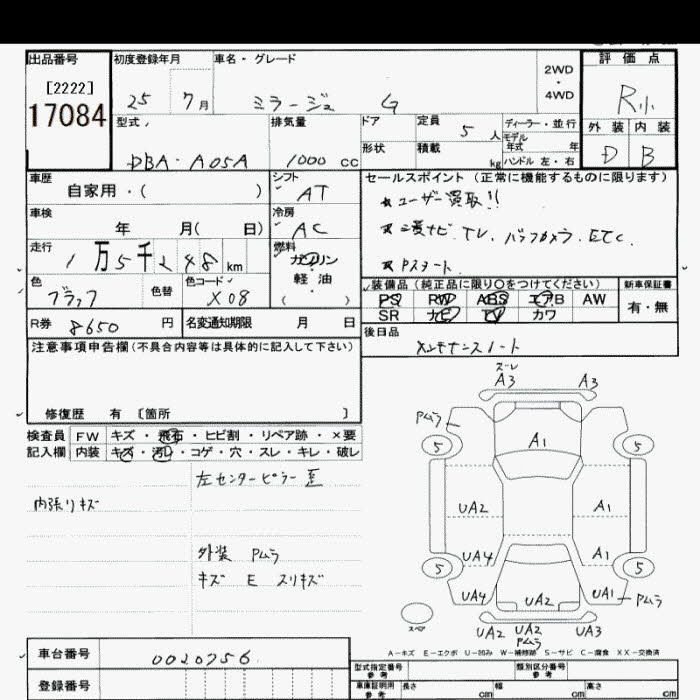 出品番号 初度登録年月 車名・グレード 2WD・4WD 評価点
[2222]
17084
25 7月 ミラージュ G R小
型式 排気量 ドア 定員 5人 ディーラー・並行 外装 内装
形状 積載 kg モデル年式 年
DBA-A05A 1000cc ハンドル 左・右 D B
車歴 シフト セールスポイント (正常に機能するものに限ります)
自家用・( ) AT ユーザー買取!!
車検 冷房
年 月( 日) AC 三菱ナビ.TV.バックカメラ.ETC.
走行 燃料 Pスタート.
1万5千248km ガソリン
軽油
( )
色 色替 色コード 装備品 (純正品に限り○をつけてください) 新車保証書
ブラック X08 PS RW ABS エアB AW 有・無
SR ナビ TV カワ
R券 8650円 名変通知期限 月 日 後日品
注意事項申告欄(不具合内容等は具体的に記入して下さい) メンテナンスノート
修復歴 有 [箇所 ]
検査員 FW キズ・飛石・ヒビ割・リペア跡・×要
記入欄 内装 キズ・汚レ・コゲ・穴・スレ・キレ・破レ
左センターピラー歪
内張リキズ
外装 Pムラ
キズ E スリキズ
スーレ
A3 A3
Pムラ
5 A1 5
UA2 A1
UA4 A1
5 5
UA4 UA2 UA1 Pムラ
スペア UA2 UA2 UA3
Pムラ
A-キズ E-エクボ U-凹み W-補修跡 S-サビ C-腐食 XX-交換済
車台番号 0020756
型式指定番号 参考 類別区分番号 参考
登録番号 車庫証明用 参考 長さ cm 幅 cm 高さ cm